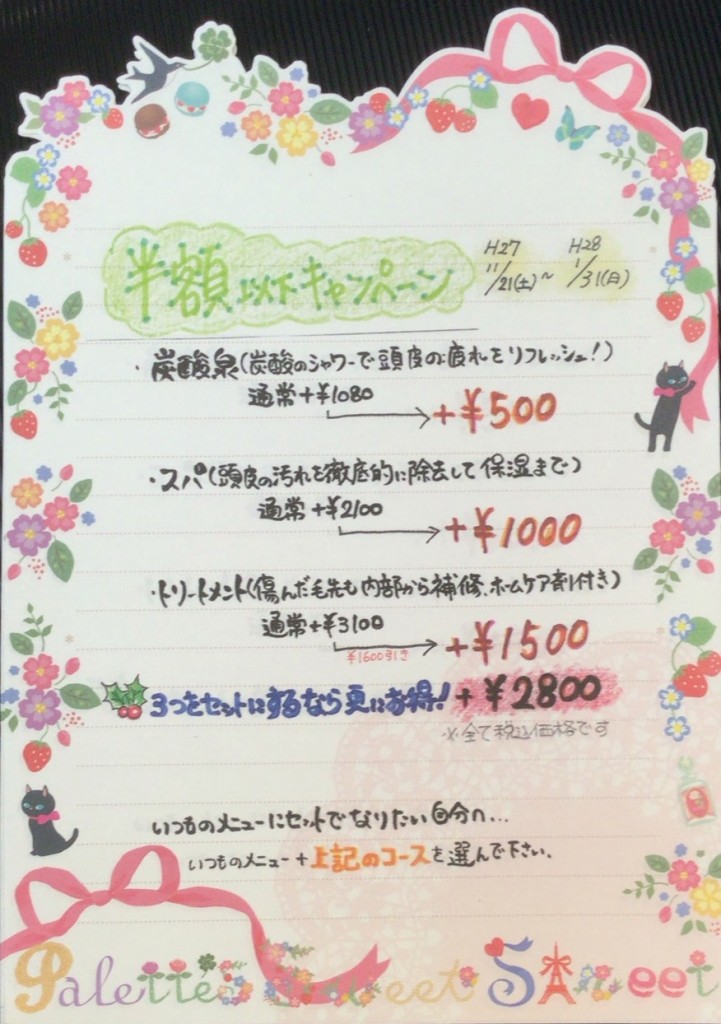 半額以下キャンペーン
H27 11/21(土)～ H28 1/31(日)
・炭酸泉(炭酸のシャワーで頭皮の疲れをリフレッシュ!)
通常+¥1080
+¥500
・スパ(頭皮の汚れを徹底的に除去して保湿まで)
通常+¥2100
+¥1000
・トリートメント(傷んだ毛先も内部から補修、ホームケア剤付き)
通常+¥3100
¥1600引き
+¥1500
3つをセットにするなら更にお得! +¥2800
※全て税込価格です
いつものメニューにセットでなりたい自分へ...
いつものメニュー+上記のコースを選んで下さい。
Palette Sweet Street